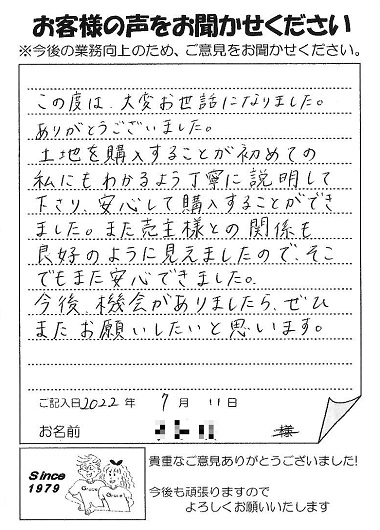 お客様の声をお聞かせください
※今後の業務向上のため、ご意見をお聞かせください。
この度は、大変お世話になりました。
ありがとうございました。
土地を購入することが初めての
私にもわかるよう丁寧に説明して
下さり、安心して購入することができ
ました。また売主様との関係も
良好のように見えましたので、そこ
でもまた安心できました。
今後、機会がありましたら、ぜひ
またお願いしたいと思います。
ご記入日2022年 7月 11日
お名前 様
Since
1979
貴重なご意見ありがとうございました!
今後も頑張りますので
よろしくお願いいたします